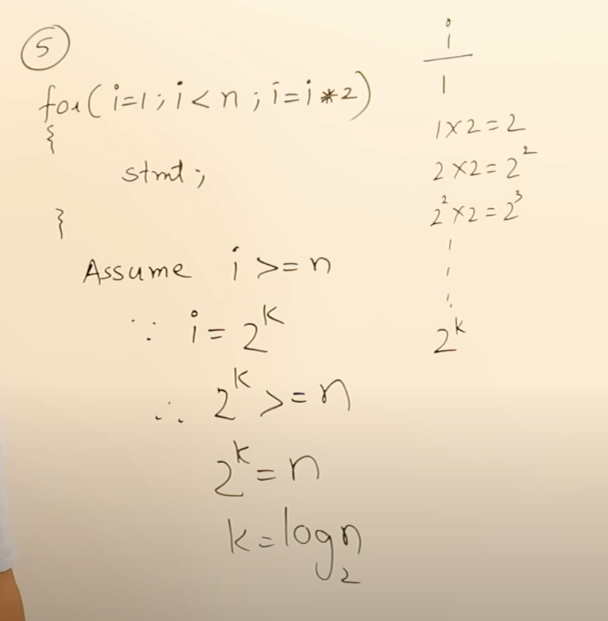 5
for(i=1; i<n; i=i*2)
{
stmt;
}
Assume i >= n
∵ i = 2^k
∴ 2^k >= n
2^k = n
k = log₂n
i
1
1×2=2
2×2=2^2
2^2×2=2^3
2^k